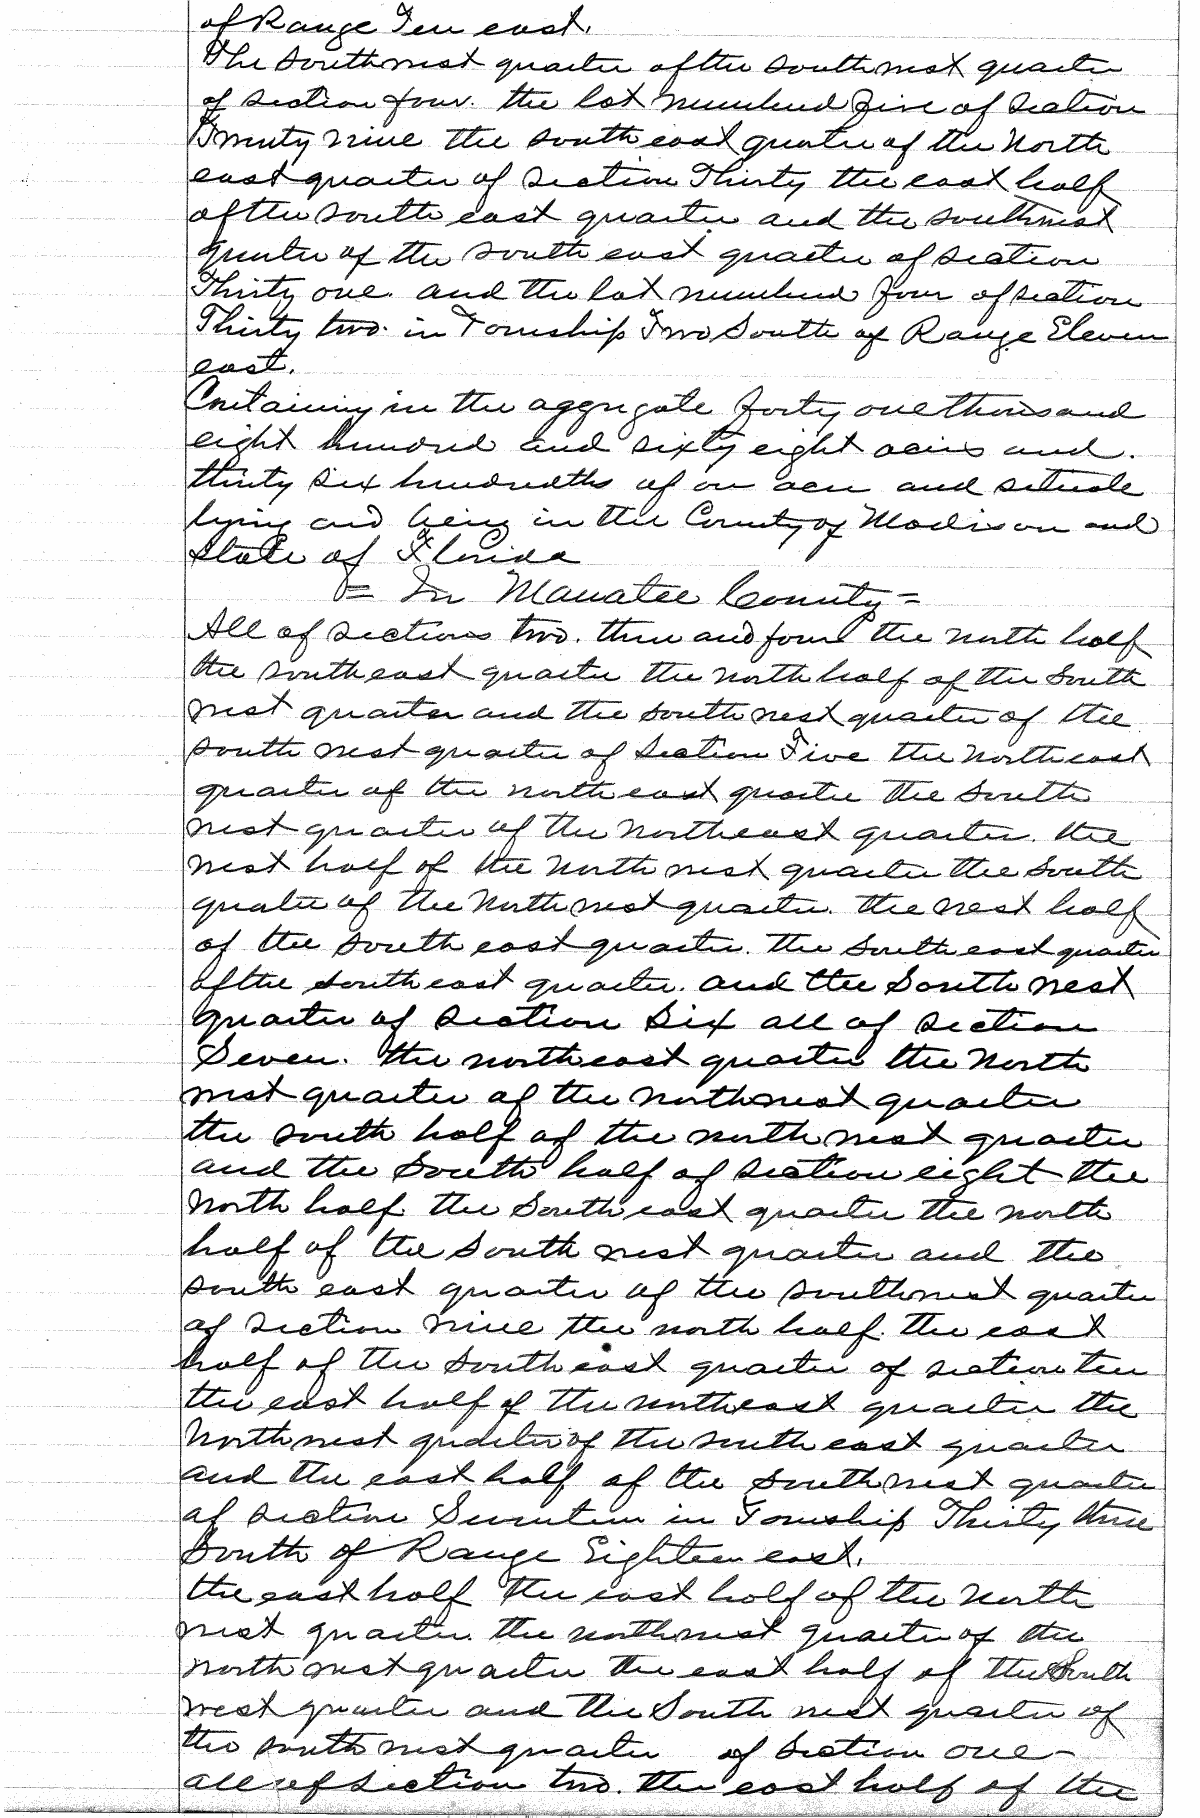 of Range Ten east.
The southwest quarter of the southwest quarter
of section four. the lot numbered five of section
Twenty nine the south east quarter of the North
east quarter of section Thirty the east half
of the south east quarter and the southwest
quarter of the south east quarter of section
Thirty one. and the lot numbered four of section
Thirty two. in Township Two South of Range Eleven
east.
Containing in the aggregate forty one thousand
eight hundred and sixty eight acres and.
thirty six hundredths of an acre and situate
lying and being in the County of Madison and
State of Florida
= In Manatee County =
All of sections two. three and four the north half
the southeast quarter the north half of the South
west quarter and the southwest quarter of the
south west quarter of Section Five the northeast
quarter of the north east quarter the South
west quarter of the northeast quarter. the
west half of the North west quarter the South
quarter of the North west quarter. the west half
of the south east quarter. the South east quarter
of the south east quarter. and the South west
quarter of section Six all of section
Seven. the northeast quarter the North
west quarter of the northwest quarter
the south half of the north west quarter
and the South half of section eight the
North half the South east quarter the north
half of the South west quarter and the
south east quarter of the southwest quarter
of section nine the north half. the east
half of the South east quarter of section ten
the east half of the northeast quarter the
North west quarter of the south east quarter
and the east half of the South west quarter
of section Seventeen in Township Thirty three
South of Range Eighteen east.
the east half the east half of the North
west quarter. the northwest quarter of the
north west quarter the east half of the South
west quarter and the South west quarter of
the south west quarter of section one -
all of section two. the east half of the